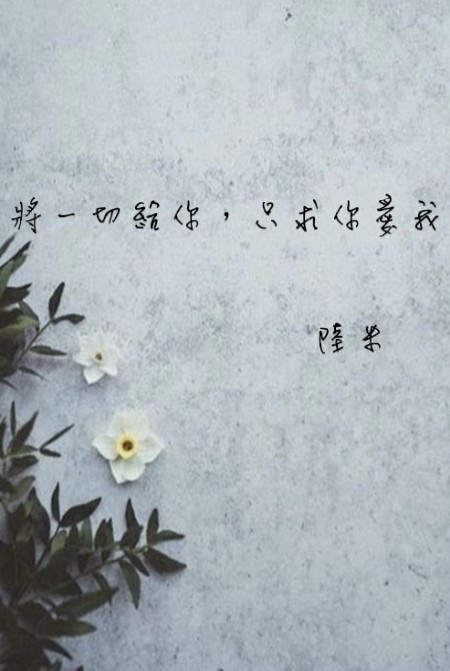 將一切給你，只求你愛我
陸米